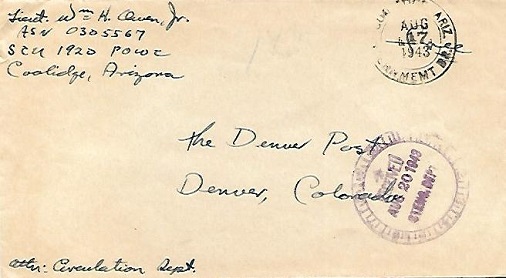 Lieut. Wm H. Owen, Jr.
ASN 0305567
SCU 1920 POWC
Coolidge, Arizona
ARIZ.
AUG
17
1943
The Denver Post
Denver, Colorado
AUG 20 1943
STENO. DEPT
Attn: Circulation Dept.